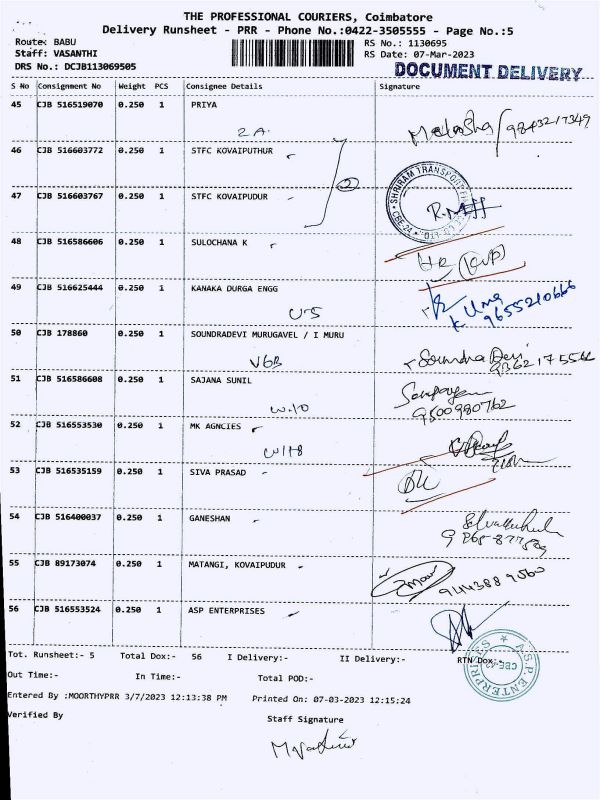 THE PROFESSIONAL COURIERS, Coimbatore
Delivery Runsheet - PRR - Phone No.:0422-3505555 - Page No.:5
Route: BABU
RS No.: 1130695
Staff: VASANTHI
RS Date: 07-Mar-2023
DRS No.: DCJB113069505
DOCUMENT DELIVERY
S No Consignment No Weight PCS Consignee Details Signature
45 CJB 516519070 0.250 1 PRIYA
2A
9843217349
46 CJB 516603772 0.250 1 STFC KOVAIPUTHUR
2
47 CJB 516603767 0.250 1 STFC KOVAIPUDUR
SHRIRAM TRANSPORT
CBE-24
48 CJB 516586606 0.250 1 SULOCHANA K
49 CJB 516625444 0.250 1 KANAKA DURGA ENGG
U-5
K Uma
9655210666
50 CJB 178860 0.250 1 SOUNDRADEVI MURUGAVEL / I MURU
VGB
Soundra Devi
51 CJB 516586608 0.250 1 SAJANA SUNIL
W.10
9500980762
52 CJB 516553530 0.250 1 MK AGNCIES
53 CJB 516535159 0.250 1 SIVA PRASAD
54 CJB 516400037 0.250 1 GANESHAN
55 CJB 89173074 0.250 1 MATANGI, KOVAIPUDUR
56 CJB 516553524 0.250 1 ASP ENTERPRISES
A.S.P. ENTERPRISES
CBE-42
Tot. Runsheet:- 5 Total Dox:- 56 I Delivery:- II Delivery:- RTN Dox:-
Out Time:- In Time:- Total POD:-
Entered By :MOORTHYPRR 3/7/2023 12:13:38 PM Printed On: 07-03-2023 12:15:24
Verified By
Staff Signature